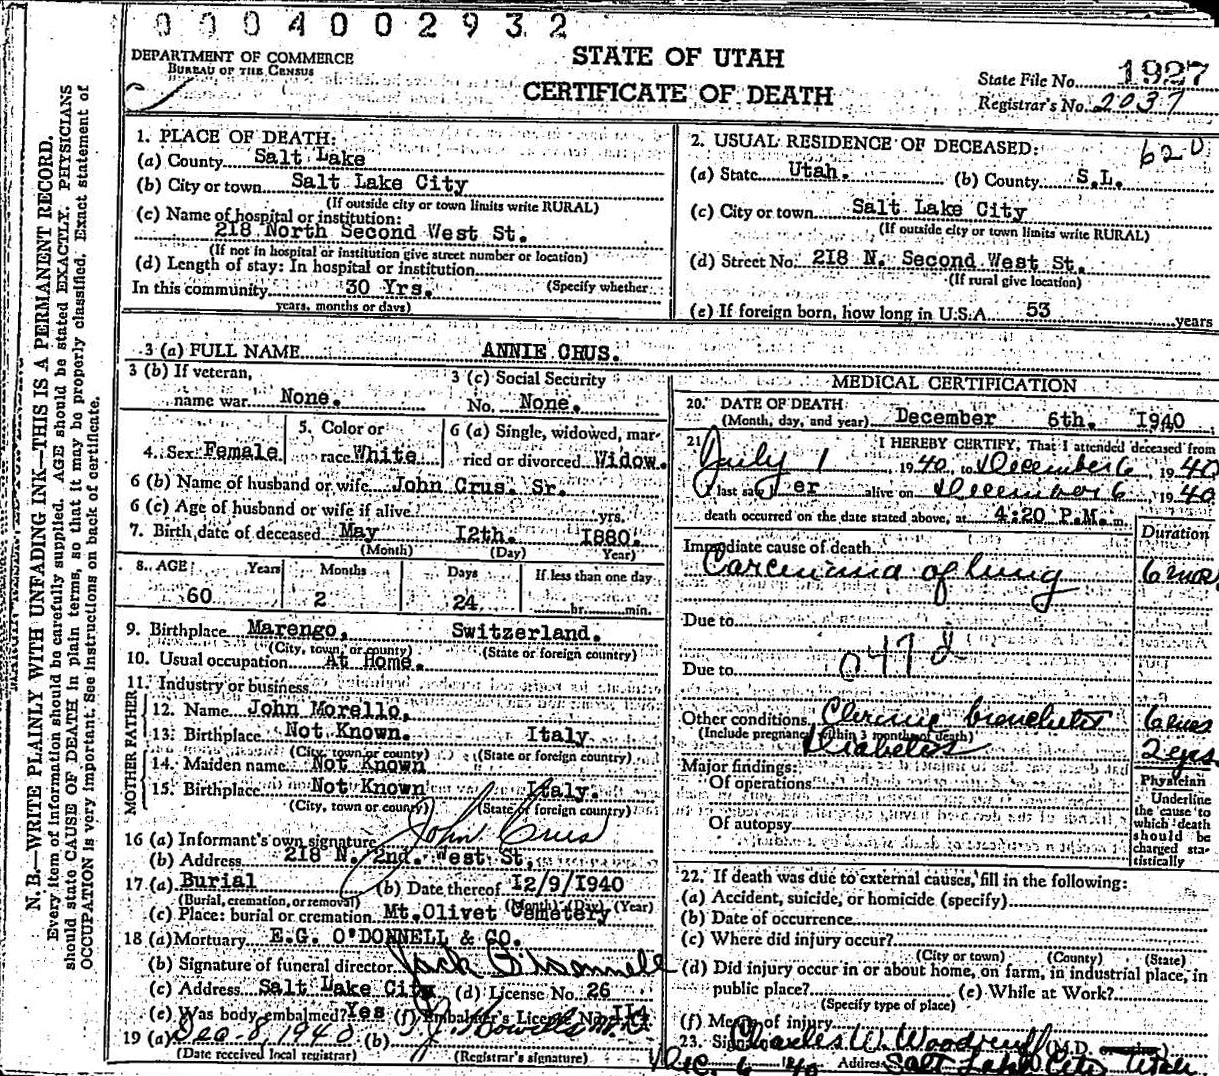 000400293 2
DEPARTMENT OF COMMERCE
BUREAU OF THE CENSUS
STATE OF UTAH
CERTIFICATE OF DEATH
State File No. 1927
Registrar's No. 2037
N. B.—WRITE PLAINLY WITH UNFADING INK—THIS IS A PERMANENT RECORD.
Every item of information should be carefully supplied. AGE should be stated EXACTLY. PHYSICIANS
should state CAUSE OF DEATH in plain terms, so that it may be properly classified. Exact statement of
OCCUPATION is very important. See instructions on back of certificate.
1. PLACE OF DEATH:
(a) County Salt Lake
(b) City or town Salt Lake City
(If outside city or town limits write RURAL)
(c) Name of hospital or institution:
218 North Second West St.
(If not in hospital or institution give street number or location)
(d) Length of stay: In hospital or institution
In this community 30 Yrs. (Specify whether
years, months or days)
2. USUAL RESIDENCE OF DECEASED: 620
(a) State Utah. (b) County S.L.
(c) City or town Salt Lake City
(If outside city or town limits write RURAL)
(d) Street No. 218 N. Second West St.
(If rural give location)
(e) If foreign born, how long in U.S.A. 53 years
3 (a) FULL NAME ANNIE CRUS.
3 (b) If veteran,
name war None.
3 (c) Social Security
No. None.
4. Sex Female
5. Color or
race White
6 (a) Single, widowed, mar-
ried or divorced Widow.
6 (b) Name of husband or wife John Crus. Sr.
6 (c) Age of husband or wife if alive yrs.
7. Birth date of deceased May 12th. 1880.
(Month) (Day) Year)
8. AGE Years Months Days If less than one day
60 2 24 hr. min.
9. Birthplace Marengo, Switzerland.
(City, town, or county) (State or foreign country)
10. Usual occupation At Home.
11. Industry or business
FATHER
12. Name John Morello,
13. Birthplace Not Known. Italy
(City, town or county) (State or foreign country)
MOTHER
14. Maiden name Not Known
15. Birthplace Not Known Italy.
(City, town or county) (State or foreign country)
16 (a) Informant's own signature John Crus
(b) Address 218 N. 2nd. West St.
17 (a) Burial (b) Date thereof 12/9/1940
(Burial, cremation, or removal) (Month) (Day) (Year)
(c) Place: burial or cremation Mt. Olivet Cemetery
18 (a) Mortuary E.G. O'DONNELL & CO.
(b) Signature of funeral director Jack O'Donnell
(c) Address Salt Lake City (d) License No. 26
(e) Was body embalmed? Yes (f) Embalmer's License No.
19 (a) Dec 8, 1940 (b)
(Date received local registrar) (Registrar's signature)
MEDICAL CERTIFICATION
20. DATE OF DEATH
(Month, day, and year) December 6th. 1940
21 I HEREBY CERTIFY, That I attended deceased from
July 1 1940, to December 6, 1940
I last saw er alive on December 6, 1940
death occurred on the date stated above, at 4:20 P.M. m.
Duration
Immediate cause of death
Carcinoma of lung 6 mos
Due to
Due to 047 d
Other conditions Chronic bronchitis 6 mos
(Include pregnancy within 3 months of death)
Diabetes 2 yrs
Major findings:
Of operations
Of autopsy
Physician
Underline
the cause to
which death
should be
charged sta-
tistically
22. If death was due to external causes, fill in the following:
(a) Accident, suicide, or homicide (specify)
(b) Date of occurrence
(c) Where did injury occur?
(City or town) (County) (State)
(d) Did injury occur in or about home, on farm, in industrial place, in
public place? (e) While at Work?
(Specify type of place)
(f) Means of injury
23. Signature Charles W. Woodruff (M.D.
Dec. 6 1940 Address Salt Lake City Utah.